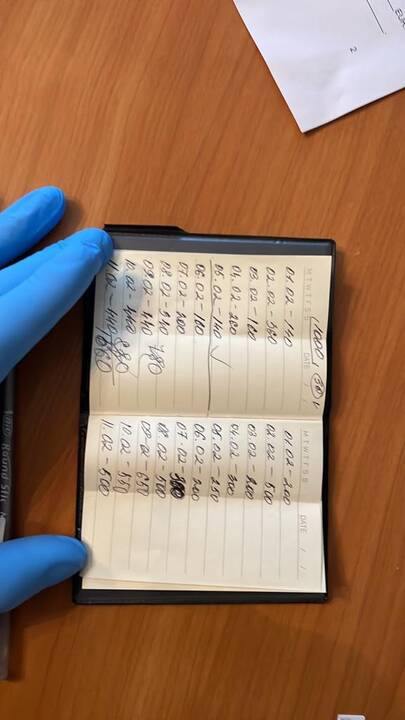 M T W T F S S DATE / /
01.02 -
02.02 - 360
03.02 - 180
04.02 - 280
05.02 - 140 ✓
06.02 - 180
07.02 - 200
08.02 - 340
09.02 440 780
10.02 - 400 880
11.02 - 440
M T W T F S S DATE / /
01.02 - 200
02.02 - 500
03.02 - 200
04.02 - 300
05.02 - 250
06.02 - 200
07.02 -
08.02 - 500
09.02 - 650
10.02 - 550
11.02 - 500
2
Round Stic